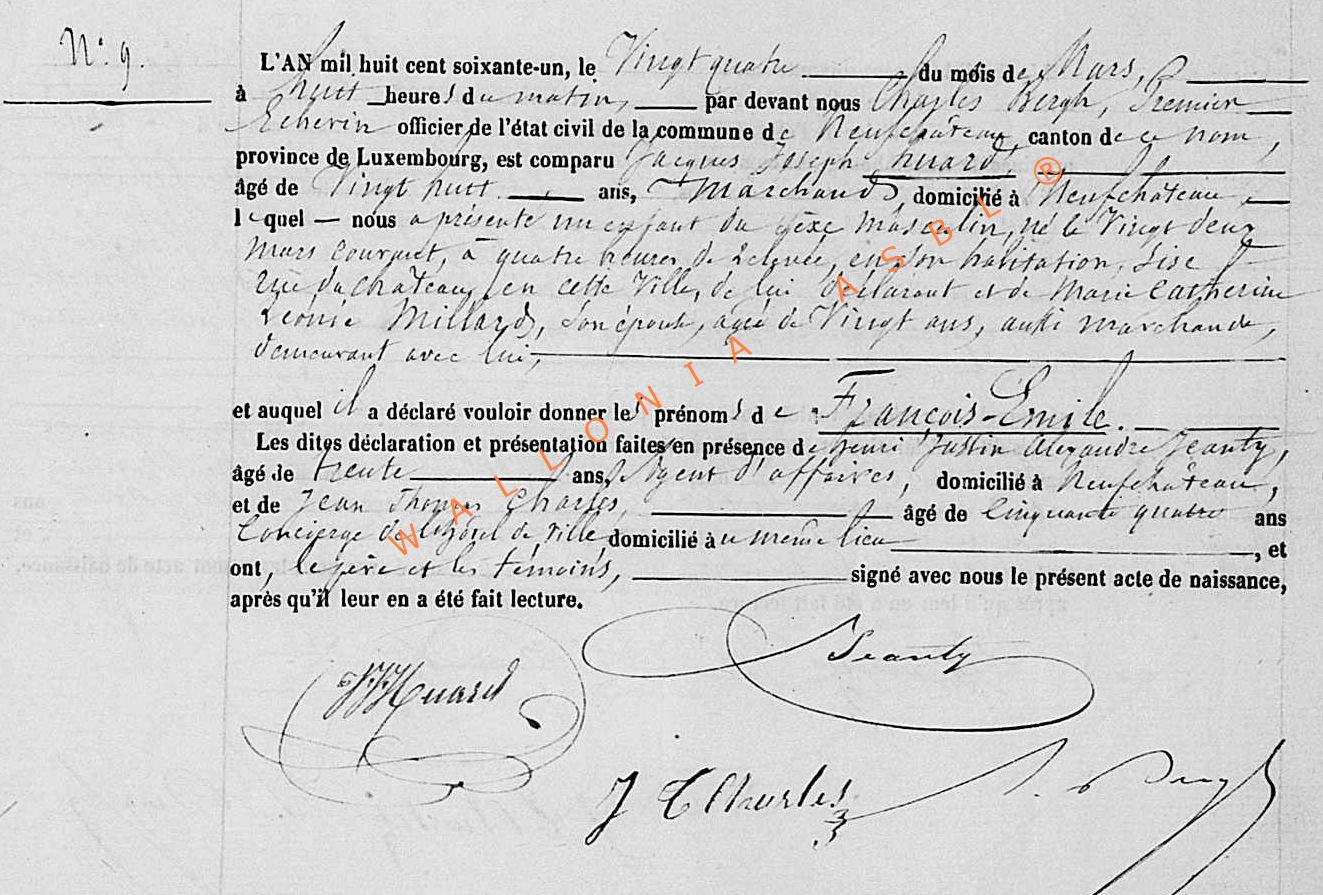 N° 9.
L'AN mil huit cent soixante-un, le Vingt quatre du mois de Mars,
à huit heures du matin, par devant nous Charles Bergh, Premier
Echevin officier de l'état civil de la commune de Neufchâteau, canton de ce nom,
province de Luxembourg, est comparu Jacques Joseph huard,
âgé de Vingt huit ans, Marchand, domicilié à Neufchâteau,
lequel nous a présenté un enfant du sèxe masculin, né le Vingt deux
Mars courant, à quatre heures de relevée, en son habitation, sise
rue du château, en cette Ville, de lui Déclarant et de Marie Catherine
Léonie Millard, son épouse, agée de Vingt ans, aussi marchande,
demeurant avec lui,
et auquel il a déclaré vouloir donner les prénoms de François-Emile.
Les dites déclaration et présentation faites en présence de henri Justin Alexandre Jeanty,
âgé de trente ans, Agent d'affaires, domicilié à Neufchâteau,
et de Jean Thomas Charles, âgé de Cinquante quatre ans
Concierge de l'hôtel de Ville, domicilié au même lieu, et
ont, le père et les témoins, signé avec nous le présent acte de naissance,
après qu'il leur en a été fait lecture.
WALLONIA ASBL ®
JJHuard
Jeanty
J T Charles